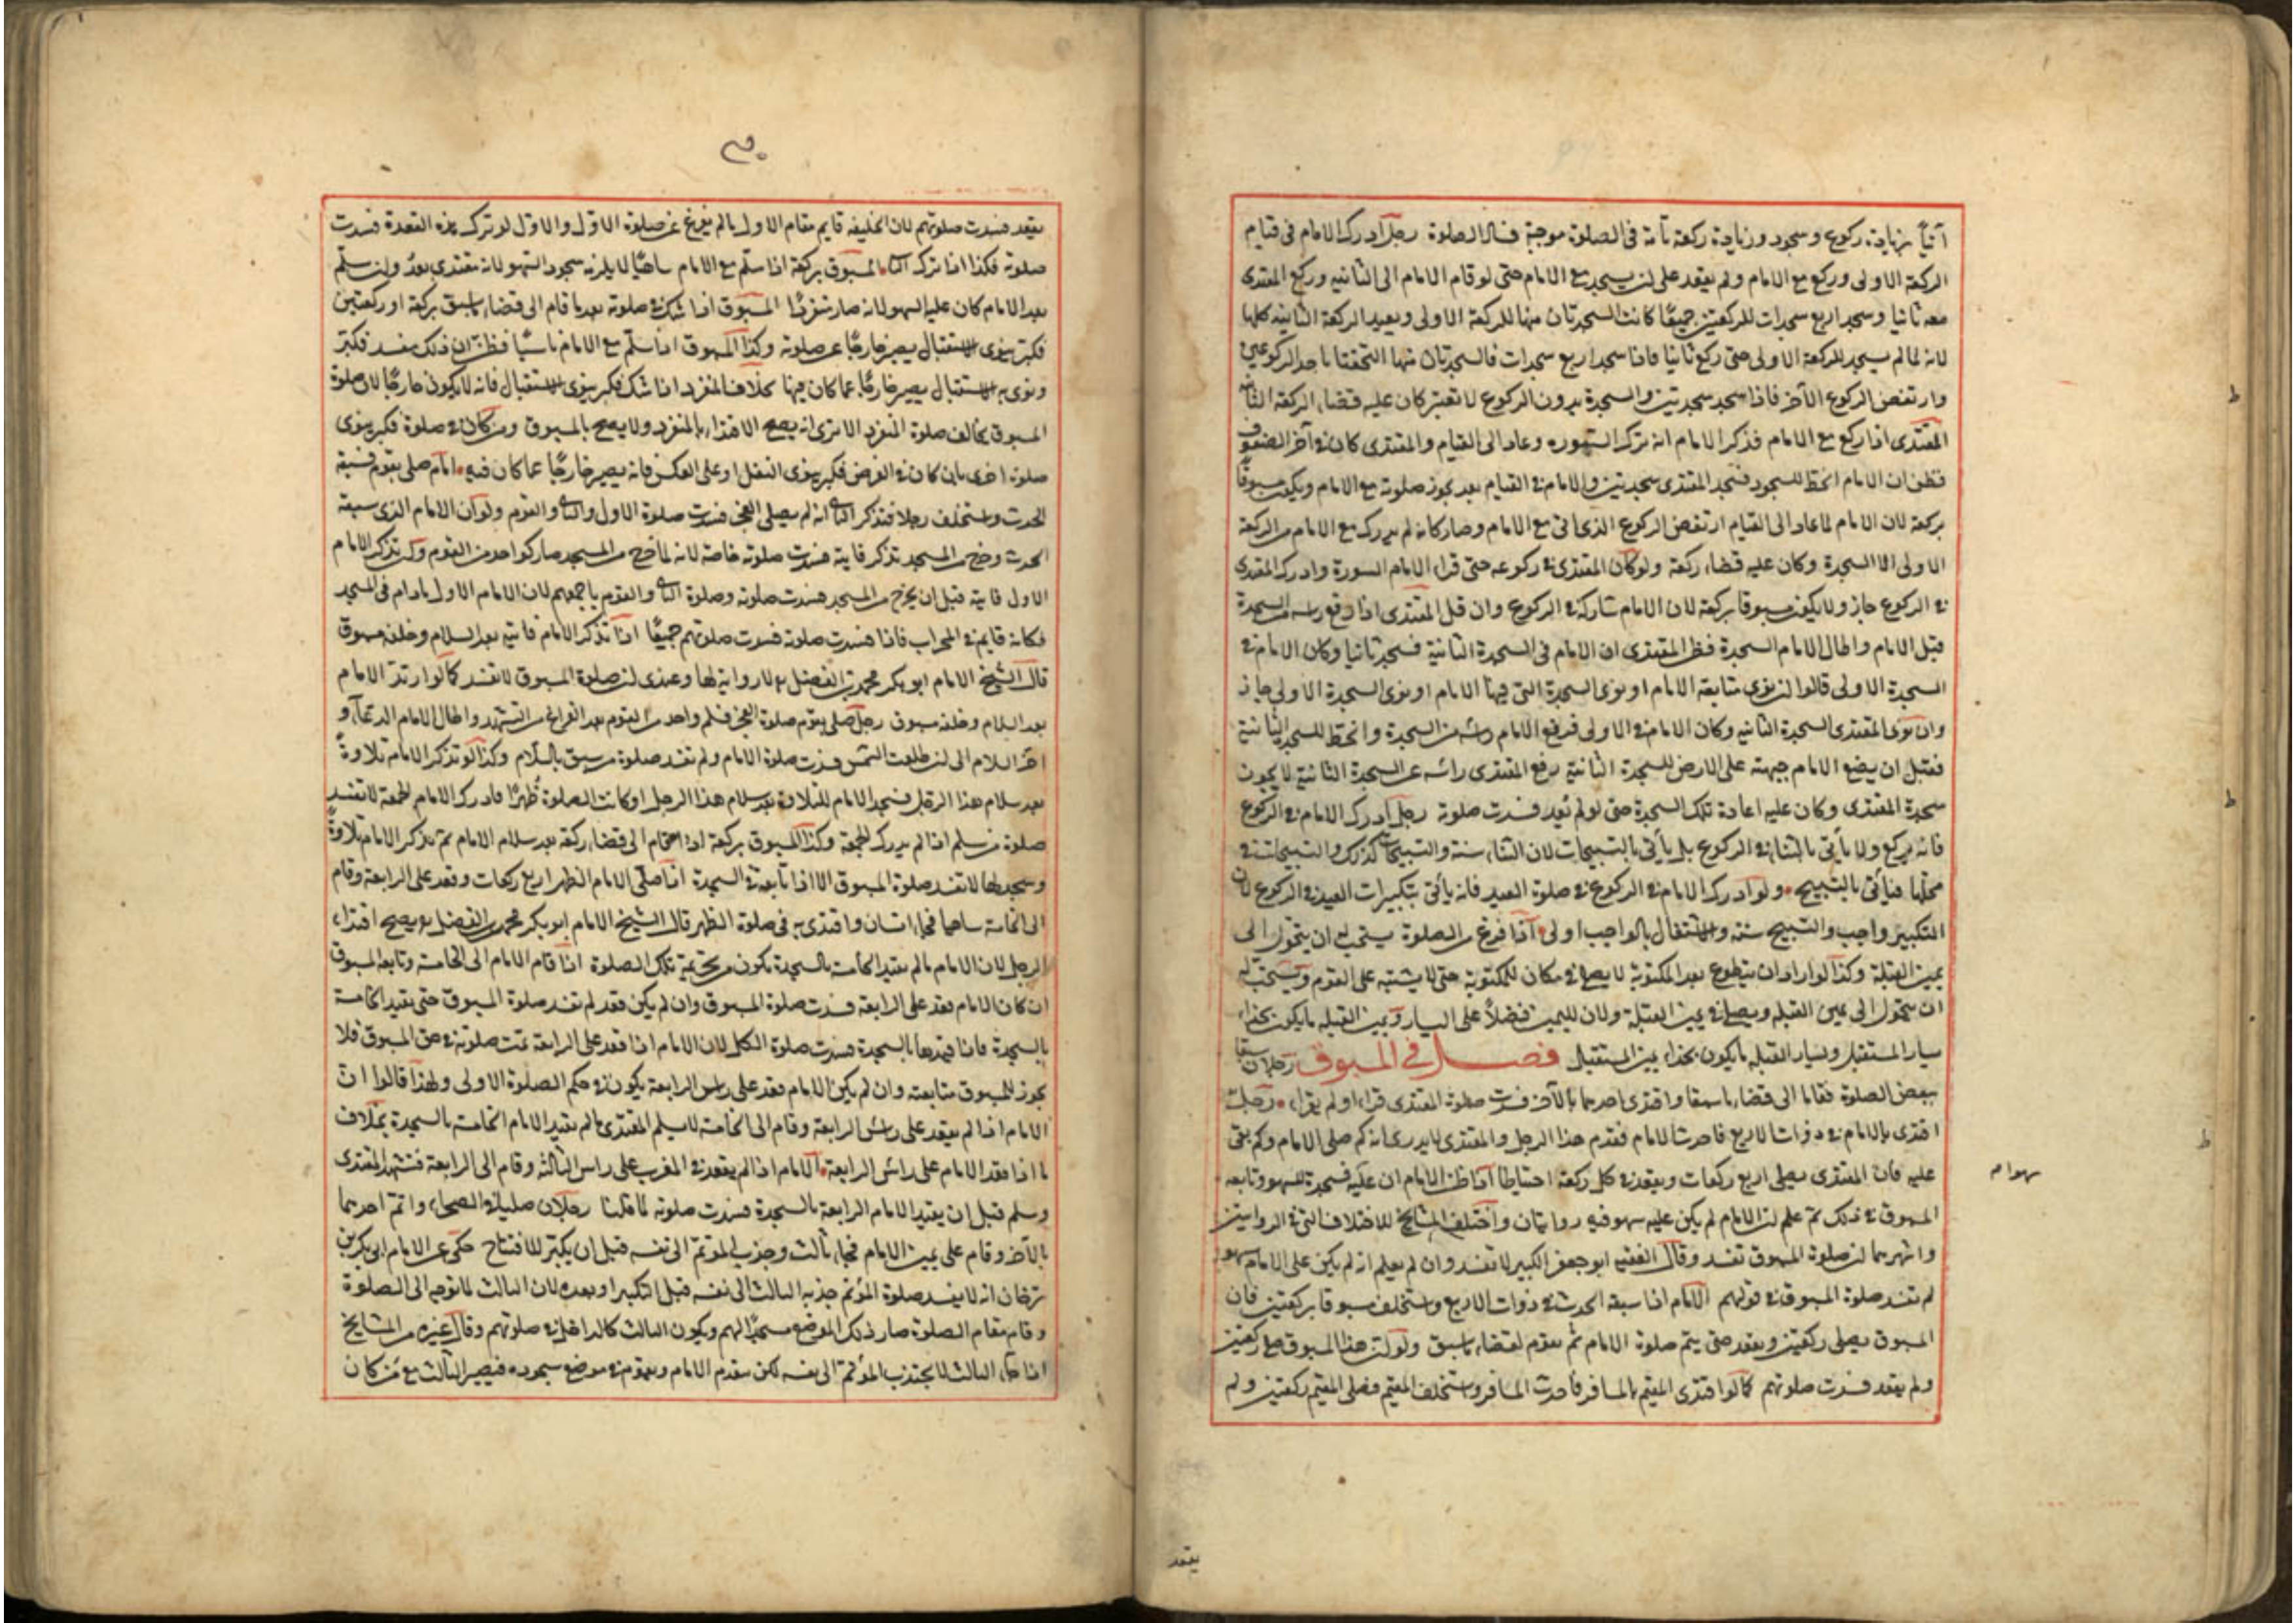 آتياً بزيادة ركوع وسجود وزيادة ركعة تامة فى الصلوة موجبة فساد الصلوة رجل ادرك الامام فى قيام
الركعة الاولى وركع مع الامام ولم يقعد على ان يسجد مع الامام حتى لو قام الامام الى الثانيه وركع المقتدى
معه ثانيا وسجد اربع سجدات للركعتين جميعًا كانت السجدتان منها للركعة الاولى ويعيد الركعة الثانيه كلها
لانه لما لم يسجد للركعة الاولى حتى ركع ثانيا فاذا سجد اربع سجدات فالسجدتان منها التحقتا باحد الركوعين
وارتفض الركوع الآخر فاذا سجد سجدتين والسجدة بدون الركوع لا تعتبر كان عليه قضاء الركعة
المقتدى اذا ركع مع الامام فذكر الامام انه ترك السوره وعاد الى القيام والمقتدى كان فى آخر الصفوف
فظن ان الامام انحط للسجود فسجد المقتدى سجدتين والامام فى القيام بعد يجوز صلوته مع الامام ويكون مسبوقًا
بركعة لان الامام لما عاد الى القيام ارتفض الركوع الذى اتى مع الامام وصار كانه لم يدرك مع الامام من الركعة
الاولى الا السجدة وكان عليه قضاء ركعة ولو كان المقتدى فى ركوعه حتى قراء الامام السورة وادرك المقتدى
فى الركوع جاز ولا يكون مسبوقا بركعة لان الامام شاركه فى الركوع وان قبل المقتدى اذا رفع رأسه من السجدة
قبل الامام واطال الامام السجدة فظن المقتدى ان الامام فى السجدة الثانية فسجد ثانيا وكان الامام فى
السجدة الاولى قالوا ان نوى متابعة الامام او نوى السجدة التى فيها الامام او نوى السجدة الاولى جاز
وان نوى المقتدى السجدة الثانيه وكان الامام فى الاولى فرفع الامام رأسه من السجدة وانحط للسجدة الثانية
فقبل ان يضع الامام جبهته على الارض للسجدة الثانية رفع المقتدى رأسه عن السجدة الثانية لا يجوز
سجدة المقتدى وكان عليه اعادة تلك السجدة حتى لو لم يعد فسدت صلوته رجل ادرك الامام فى الركوع
فانه يركع ولا يأتى بالثناء فى الركوع بل يأتى بالتسبيحات لان الثناء سنة والتسبيحات كذلك والتسبيحات فى
محلها فيأتى بالتسبيح ولو ادرك الامام فى الركوع فى صلوة العيد فانه يأتى بتكبيرات العيد فى الركوع لان
التكبير واجب والتسبيح سنة والاشتغال بالواجب اولى اذا فرغ من الصلوة يستحب له ان يتحول الى
يمين القبلة وكذا لو اراد ان يتطوع بعد المكتوبة لا يصلى فى مكان المكتوبة حتى لا يشتبه على القوم ويستحب له
ان يتحول الى يمين القبله ويصلى فى يمين القبلة ولان لليمين فضلاً على اليسار ويمين القبله ما يكون بحذاء
يسار المستقبل ويسار القبله ما يكون بحذاء يمين المستقبل فصل فى المسبوق رجلان سبقا
ببعض الصلوة فقاما الى قضاء ما سبقا واقتدى احدهما بالآخر فسدت صلوة المقتدى قراء او لم يقراء رجل
اقتدى بالامام فى ذوات الاربع فاحدث الامام فقدم هذا الرجل والمقتدى لا يدرى انه كم صلى الامام وكم بقى
عليه فان المقتدى يصلى اربع ركعات ويقعد فى كل ركعة احتياطا اذا ظن الامام ان عليه فسجد للسهو وتابعه
سهوا م
المسبوق فى ذلك ثم علم ان الامام لم يكن عليه سهو فيه روايتان واختلف المشايخ لاختلاف التى فى الروايتين
واشهرهما ان صلوة المسبوق تفسد وقال الفقيه ابو جعفر الكبير لا تفسد وان لم يعلم انه لم يكن على الامام سهو
لم تفسد صلوة المسبوق فى قولهم الامام اذا سبقه الحدث فى ذوات الاربع واستخلف مسبوقا بركعتين فان
المسبوق يصلى ركعتين ويقعد حتى يتم صلوة الامام ثم يقوم لقضاء ما سبق ولو ان هذا المسبوق صلى ركعتين
ولم يقعد فسدت صلوتهم كما لو اقتدى المقيم بالمسافر فاحدث المسافر واستخلف المقيم فصلى المقيم ركعتين ولم
يقعد
٣٠
يقعد فسدت صلوتهم لان الخليفه قايم مقام الاول ما لم يفرغ عن صلوة الاول والاول لو ترك هذه القعدة فسدت
صلوته فكذا اذا ترك المسبوق بركعة اذا سلم مع الامام ساهيًا لا يلزمه سجود السهو لانه مقتدى بعدُ وان سلم
بعد الامام كان عليه السهو لانه صار منفردًا المسبوق اذا شك فى صلوته بعد ما قام الى قضاء ما سبق بركعة او ركعتين
فكبر ينوى الاستقبال يصير خارجًا عن صلوته وكذا المسبوق اذا سلم مع الامام ناسيًا فظن ان ذلك مفسد فكبر
ونوى به الاستقبال يصير خارجًا عما كان فيها بخلاف المنفرد اذا شك فكبر ينوى الاستقبال فانه لا يكون خارجًا لان صلوة
المسبوق يخالف صلوة المنفرد الا ترى انه يصح الاقتداء بالمنفرد ولا يصح بالمسبوق ومن كان فى صلوة فكبر ينوى
صلوة اخرى بان كان فى الفرض فكبر ينوى النفل او على العكس فانه يصير خارجًا عما كان فيه امام صلى بقوم فسبقه
الحدث واستخلف رجلا فتذكر انه لم يصلى الفجر فسدت صلوة الاول والقوم ولو ان الامام الذى سبقه
الحدث وخرج من المسجد تذكر فايتة فسدت صلوته خاصة لانه لما خرج من المسجد صار كواحد من القوم ولو تذكر الامام
الاول فايتة قبل ان يخرج من المسجد فسدت صلوته وصلوة والقوم باجمعهم لان الامام الاول ما دام فى المسجد
فكانه قايم فى المحراب فاذا فسدت صلوته فسدت صلوتهم جميعًا اذا تذكر الامام فايتة بعد السلام وخلفه مسبوق
قال الشيخ الامام ابو بكر محمد بن الفضل لا رواية لها وعندى ان صلوة المسبوق لا تفسد كما لو ارتد الامام
بعد السلام وخلفه مسبوق رجل صلى بقوم صلوة الفجر فسلم واحد من القوم بعد الفراغ من التشهد واطال الامام الدعاء و
اخر السلام الى ان طلعت الشمس فسدت صلوة الامام ولم تفسد صلوة من سبق بالسلام وكذا لو تذكر الامام تلاوةً
بعد سلام هذا الرجل فسجد الامام للتلاوة بعد سلام هذا الرجل او كانت الصلوة ظهرًا فادرك الامام الجمعة لا تفسد
صلوة من سلم اذا لم يدرك الجمعة وكذا المسبوق بركعة اذا قام الى قضاء ركعة بعد سلام الامام ثم تذكر الامام تلاوةً
وسجد لها لا تفسد صلوة المسبوق الا اذا تابعه فى السجدة اذا صلى الامام الظهر اربع ركعات وقعد على الرابعة وقام
الى الخامسة ساهيا فجاء انسان واقتدى به فى صلوة الظهر قال الشيخ الامام ابو بكر محمد بن الفضل يصح اقتداء
الرجل لان الامام ما لم يقيد الخامسة بالسجدة يكون فى تحريمة تلك الصلوة اذا قام الامام الى الخامسة وتابعه المسبوق
ان كان الامام قعد على الرابعة فسدت صلوة المسبوق وان لم يكن قعد لم تفسد صلوة المسبوق حتى يقيد الخامسة
بالسجدة فاذا قيدها بالسجدة فسدت صلوة الكل لان الامام اذا قعد على الرابعة تمت صلوته فى حق المسبوق فلا
يجوز للمسبوق متابعته وان لم يكن الامام قعد على رأس الرابعة يكون فى حكم الصلوة الاولى ولهذا قالوا ان
الامام اذا لم يقعد على رأس الرابعة وقام الى الخامسة لا يسلم المقتدى ما لم يقيد الامام الخامسة بالسجدة بخلاف
ما اذا قعد الامام على رأس الرابعة الامام اذا لم يقعد فى المغرب على راس الثالثة وقام الى الرابعة فتشهد المقتدى
وسلم قبل ان يقيد الامام الرابعة بالسجدة فسدت صلوته لما قلنا رجلان صليا فى الصحراء واتم احدهما
بالآخر وقام على يمين الامام فجاء ثالث وجذب المؤتم الى نفسه قبل ان يكبر للافتتاح حكى عن الامام ابى بكر بن
طرخان انه لا يفسد صلوة المؤتم جذبه الثالث الى نفسه قبل التكبير او بعده لان الثالث لما توجه الى الصلوة
وقام مقام الصلوة صار ذلك الموضع مسجدًا لهم ويكون الثالث كالداخل فى صلوتهم وقال غيره من المشايخ
اذا جاء الثالث لا يجذب المؤتم الى نفسه لكن يتقدم الامام ويقوم فى موضع سجوده فيصير الثالث مع من كان